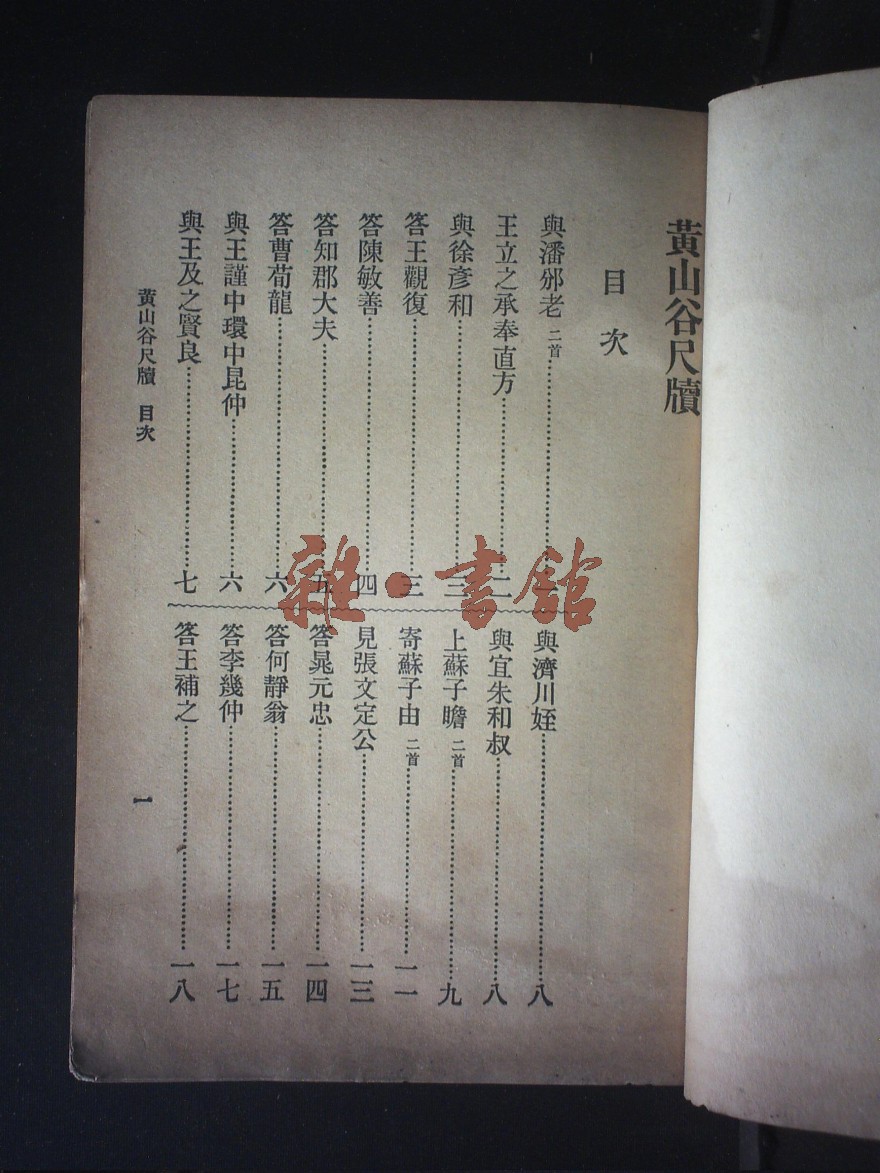 黃山谷尺牘
目次
與潘邠老 二首
王立之承奉直方……二
與徐彥和……三
答王觀復……三
答陳敏善……四
答知郡大夫……五
答曹荀龍……六
與王謹中環中昆仲……六
與王及之賢良……七
與濟川姪……八
與宜朱和叔……八
上蘇子瞻 二首……九
寄蘇子由 二首……一一
見張文定公……一三
答晁元忠……一四
答何靜翁……一五
答李幾仲……一七
答王補之……一八
黃山谷尺牘 目次
一
雜·書館